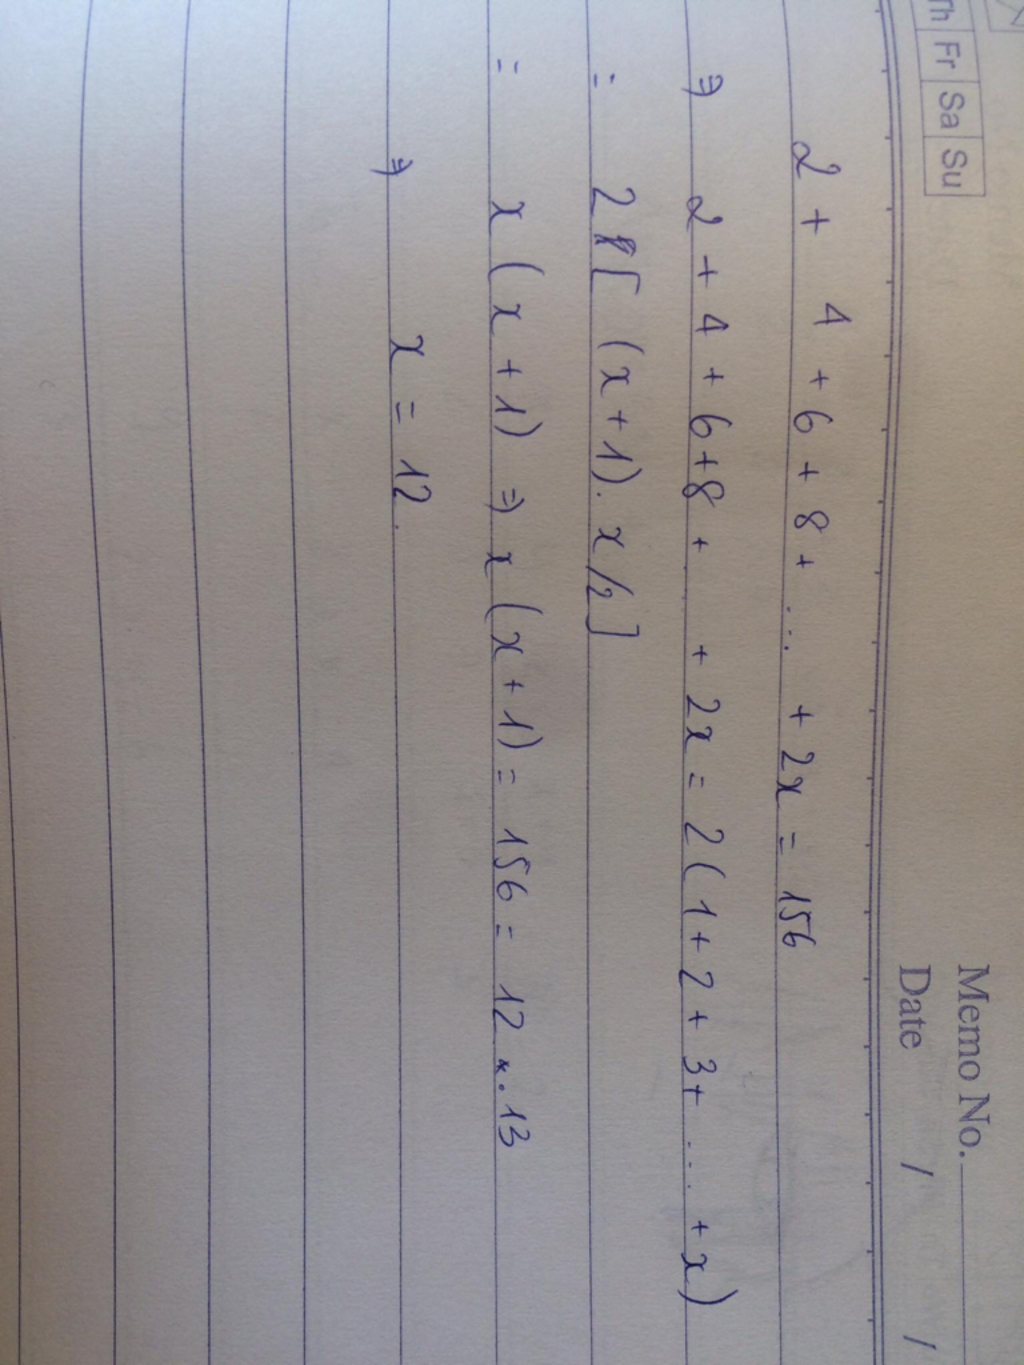 Memo No.
Th Fr Sa Su
Date / /
2 + 4 + 6 + 8 + ... + 2x = 156
⇒ 2 + 4 + 6 + 8 + + 2x = 2 ( 1 + 2 + 3 + ... + x )
= 2 [ (x + 1) . x/2 ]
= x ( x + 1 ) ⇒ x ( x + 1 ) = 156 = 12 . 13
⇒ x = 12.